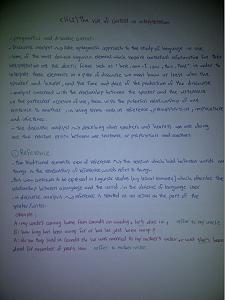 ch(2) The role of context in interpretation
pragmatics and discourse context:
Discourse analyst may take a pragmatic approach to the study of language in use.
Some of the most obvious linguistic elements which require contextual information for their
interpretation are the deictic forms such as "here, now, I, you, this, that". In order to
interpret these elements in a piece of discourse we must know at least who the
speaker and hearer, and the time and place of the production of the discourse
analyst concerned with the relationship between the speaker and the utterance
on the particular occasion of use, than with the potential relationship of one
sentence to another. in using terms such as reference, presupposition, implicature
and inference.
the discourse analyst is describing what speakers and hearers are doing
not the relation exists between one sentence or proposition and another.
① Reference
the traditional semantic view of reference is the relation which hold between words and
things is the relationship of reference. words refer to things.
this view continues to be expressed in linguistic studies (eg lexical semantics) which describes the
relationship between a language and the world in the absence of language user.
in discourse analysis reference is treated as an action on the part of the
speaker/writer.
example:
A my uncle's coming home from Canada on sunday, he's due in, refer to my uncle
B: how long has he been away for or has he just been away?
A: oh no they lived in Canada eh he was married to my mother's sister, well she's been
dead for number of years now refer to mother sister